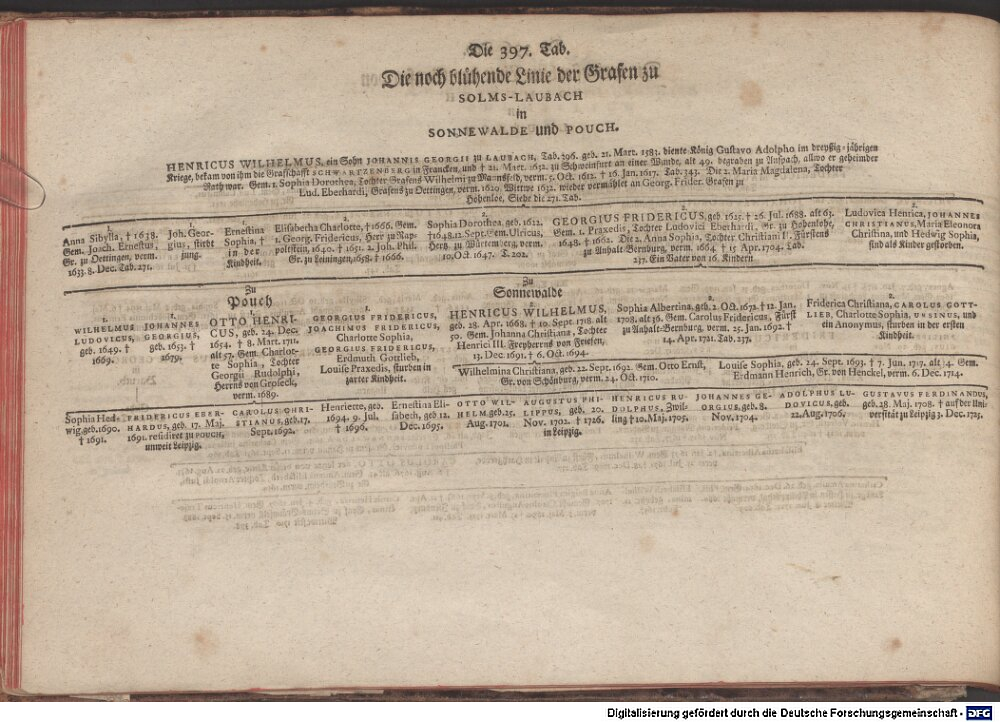 Die 397. Tab.
Die noch blühende Linie der Grafen zu
SOLMS-LAUBACH
in
SONNEWALDE und POUCH.
HENRICUS WILHELMUS, ein Sohn JOHANNIS GEORGII zu LAUBACH, Tab. 396. geb. 21. Mart. 1583. diente König Gustavo Adolpho im dreyßig-jährigen
Kriege, bekam von ihm die Grafschafft SCHWARTZENBERG in Francken, und † 21. Mart. 1632. zu Schweinfurt an einer Wunde, alt 49. begraben zu Anspach, allwo er geheimder
Rath war. Gem. 1. Sophia Dorothea, Tochter Grafens Wilhelmi zu Mannsfeld, verm. 5. Oct. 1612. † 16. Jan. 1617. Tab. 343. Die 2. Maria Magdalena, Tochter
Lud. Eberhardi, Grafens zu Oettingen, verm. 1620. Wittwe 1632. wieder vermählet an Georg. Frider. Grafen zu
Hohenloe, Siehe die 271. Tab.
1.
Anna Sibylla, † 1638.
Gem. Joach. Ernestus,
Gr. zu Oettingen, verm.
1633. 8. Dec. Tab. 271.
1.
Joh. Geor-
gius, stirbt
jung.
1.
Ernestina
Sophia, †
in der
Kindheit.
2.
Elisabetha Charlotte, † 1666. Gem.
1. Georg. Fridericus, Herr zu Rap-
poltstein, 1640. † 1651. 2. Joh. Phil.
Gr. zu Leiningen, 1658. † 1666.
2.
Sophia Dorothea, geb. 1622.
† 1648. 12. Sept. Gem. Ulricus,
Hertz. zu Würtemberg, verm.
10. Oct. 1647. T. 202.
2.
GEORGIUS FRIDERICUS, geb. 1625. † 26. Jul. 1688. alt 63.
Gem. 1. Praxedis, Tochter Ludovici Eberhardi, Gr. zu Hohenlohe,
1648. † 1662. Die 2. Anna Sophia, Tochter Christiani II. Fürstens
zu Anhalt-Bernburg, verm. 1664. † 15. Apr. 1704. Tab.
237. Ein Vater von 16. Kindern.
2.
Ludovica Henrica, JOHANNES
CHRISTIANUS, Maria Eleonora
Christina, und Hedwig Sophia,
sind als Kinder gestorben.
1.
WILHELMUS
LUDOVICUS,
geb. 1649. †
1669.
1.
JOHANNES
GEORGIUS,
geb. 1653. †
1679.
Zu
Pouch
1.
OTTO HENRI-
CUS, geb. 24. Dec.
1654. † 8. Mart. 1711.
alt 57. Gem. Charlot-
te Sophia, Tochter
Georgii Rudolphi,
Herrns von Crosseck,
verm. 1689.
1.
GEORGIUS FRIDERICUS,
JOACHIMUS FRIDERICUS,
Charlotte Sophia,
GEORGIUS FRIDERICUS,
Erdmuth Gottlieb,
Louise Praxedis, sturben in
zarter Kindheit.
Zu
Sonnewalde
2.
HENRICUS WILHELMUS,
geb. 28. Apr. 1668. † 10. Sept. 1718. alt
50. Gem. Johanna Christiana, Tochter
Henrici III. Freyherrns von Friesen,
13. Dec. 1691. † 6. Oct. 1694.
2.
Sophia Albertina, geb. 2. Oct. 1672. † 12. Jan.
1708. alt 36. Gem. Carolus Fridericus, Fürst
zu Anhalt-Bernburg, verm. 25. Jan. 1692. †
14. Apr. 1721. Tab. 237.
2.
Friderica Christiana, CAROLUS GOTT-
LIEB, Charlotte Sophia, UNSINUS, und
ein Anonymus, sturben in der ersten
Kindheit.
Wilhelmina Christiana, geb. 22. Sept. 1692. Gem. Otto Ernst,
Gr. von Schönburg, verm. 24. Oct. 1710.
Louise Sophia, geb. 24. Sept. 1693. † 7. Jun. 1717. alt 24. Gem.
Erdmann Henrich, Gr. von Henckel, verm. 6. Dec. 1714.
Sophia Hed-
wig, geb. 1690.
† 1691.
FRIDERICUS EBER-
HARDUS, geb. 17. Maj.
1691. residiret zu POUCH,
unweit Leipzig.
CAROLUS CHRI-
STIANUS, geb. 17.
Sept. 1692.
Henriette, geb.
1694. 9. Jul.
† 1696.
Ernestina Eli-
sabeth, geb. 12.
Dec. 1695.
OTTO WIL-
HELM, geb. 25.
Aug. 1701.
AUGUSTUS PHI-
LIPPUS, geb. 20.
Nov. 1702. † 1726.
in Leipzig.
HENRICUS RU-
DOLPHUS, Zwil-
ling † 10. Maj. 1705.
JOHANNES GE-
ORGIUS, geb. 8.
Nov. 1704.
ADOLPHUS LU-
DOVICUS, geb.
22. Aug. 1706.
GUSTAVUS FERDINANDUS,
geb. 28. Maj. 1708. † auf der Uni-
versität zu Leipzig 3. Dec. 1725.
Digitalisierung gefördert durch die Deutsche Forschungsgemeinschaft - DFG